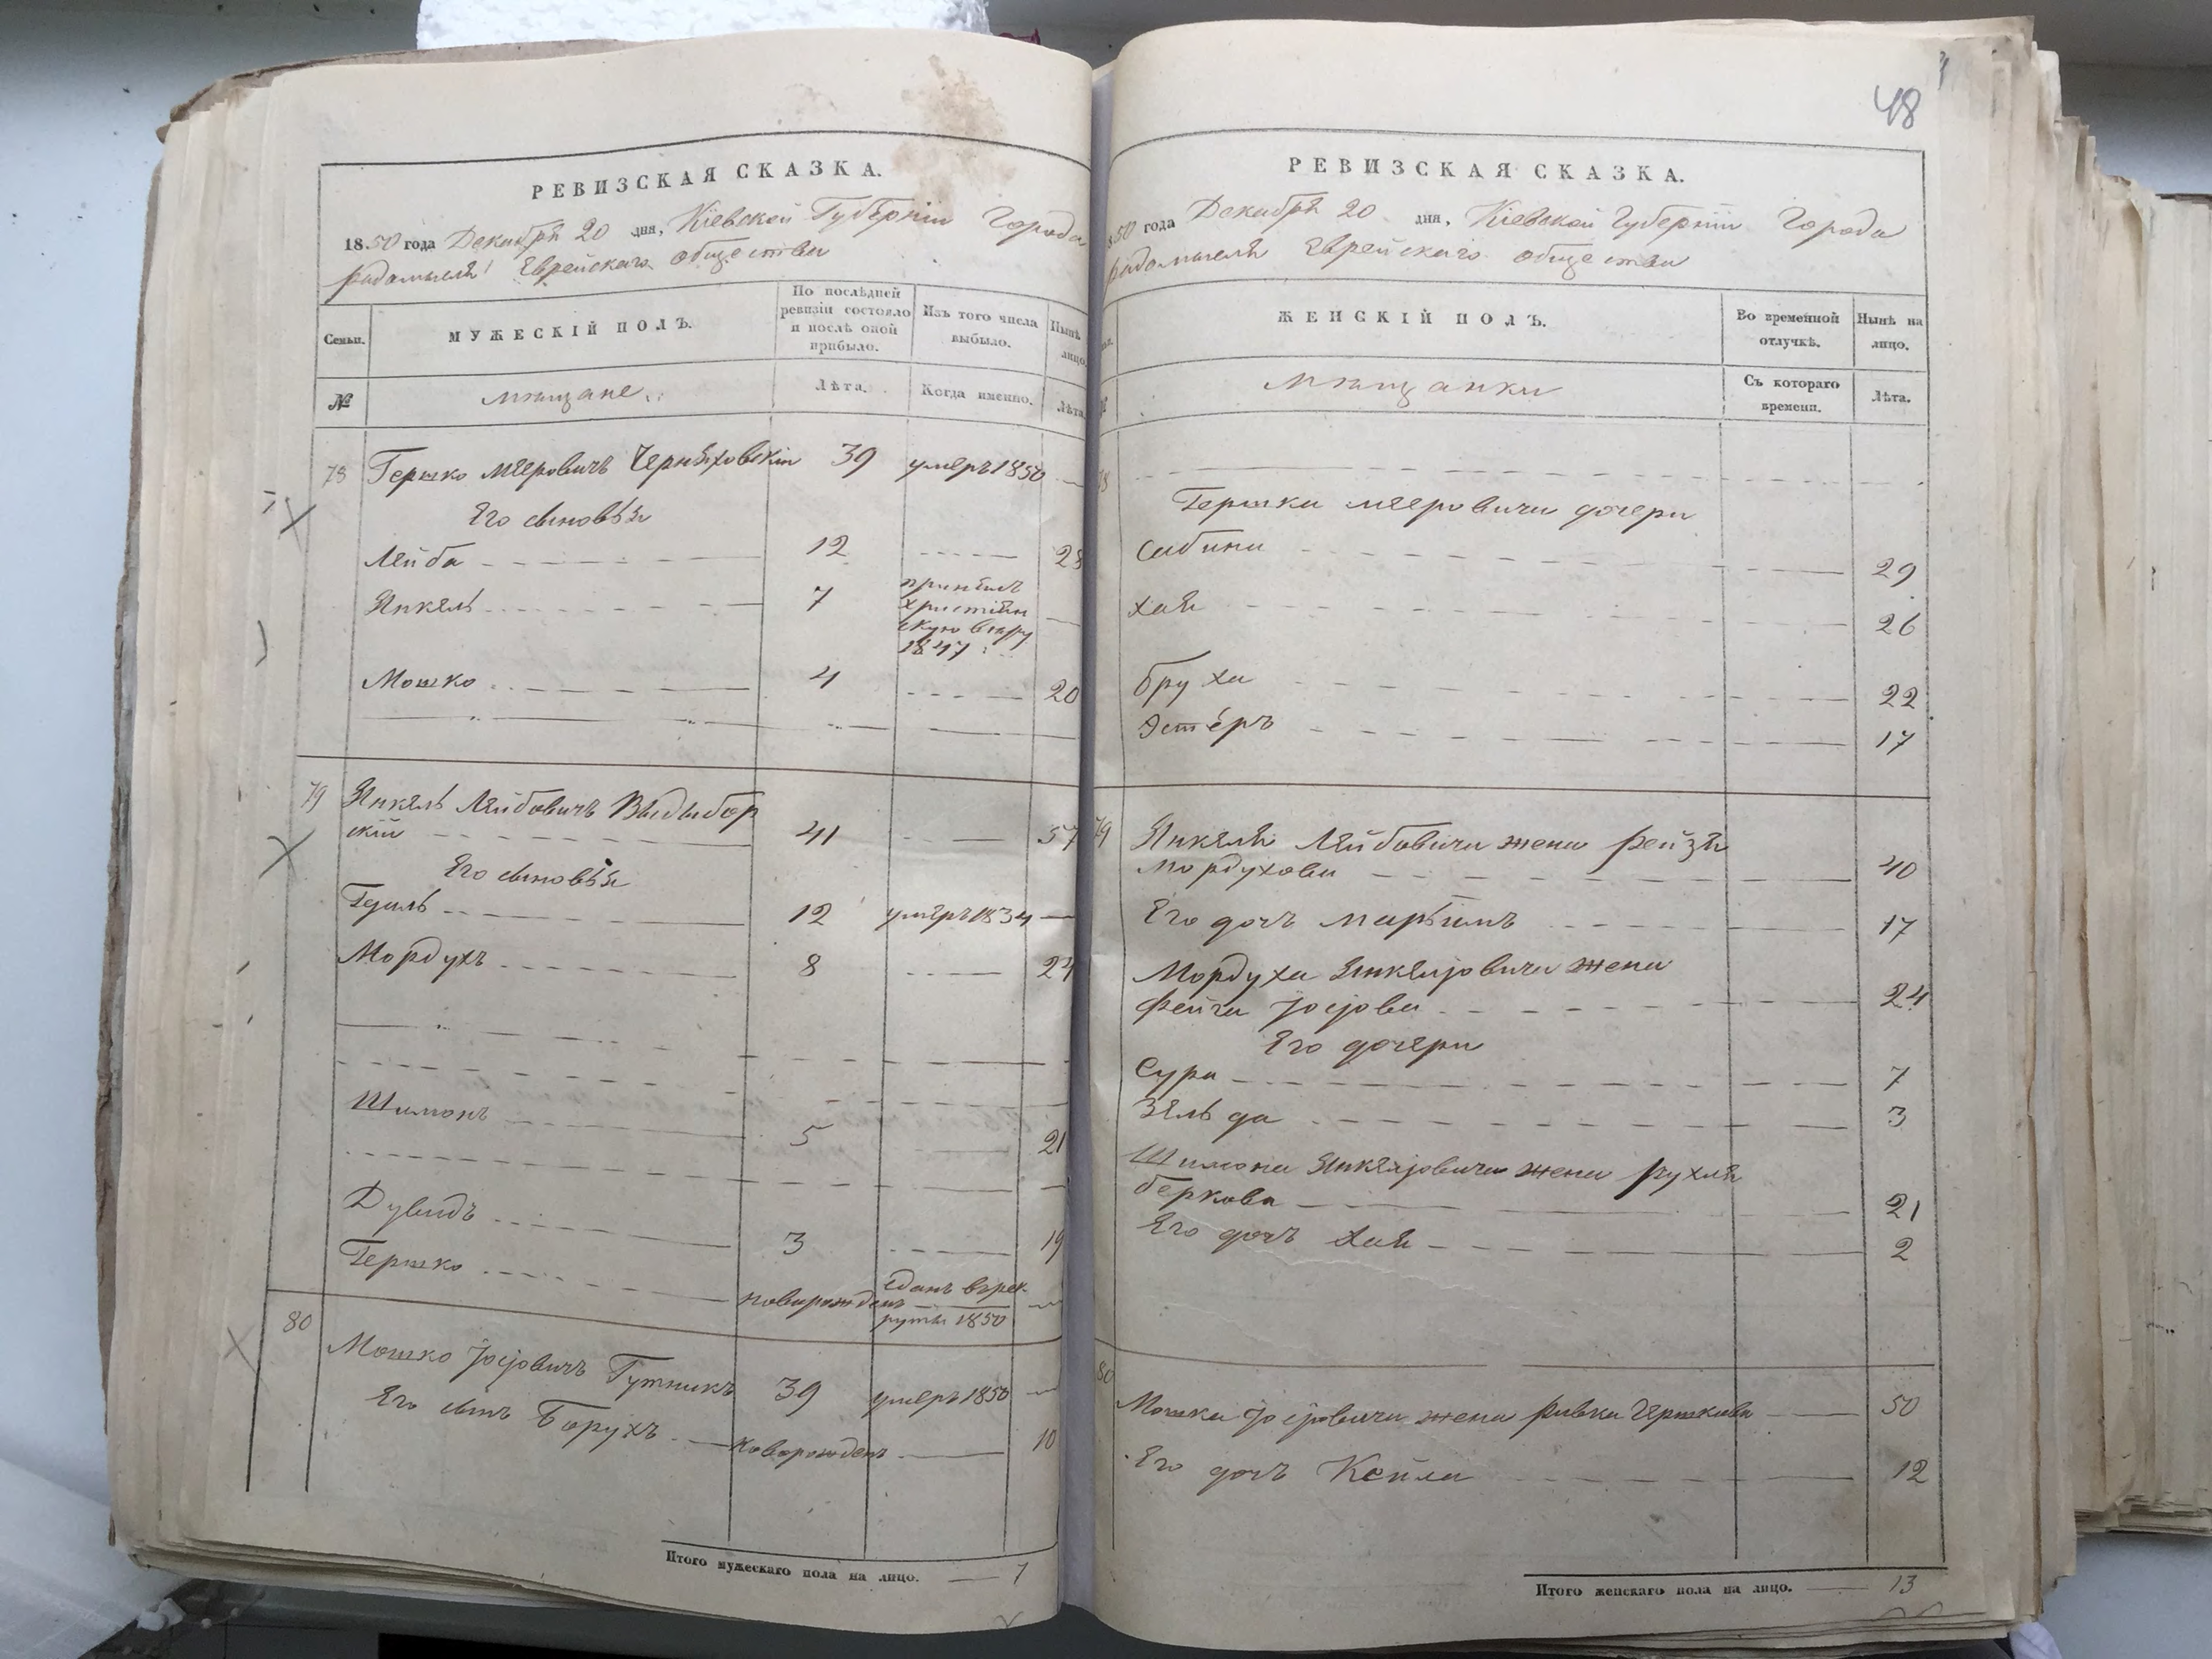 48
РЕВИЗСКАЯ СКАЗКА.
1850 года Декабря 20 дня, Кіевской Губерніи Города
Радомысля Еврейскаго общества
Семьи.
МУЖЕСКІЙ ПОЛЪ.
По послѣдней
ревизіи состояло
и послѣ оной
прибыло.
Изъ того числа
выбыло.
Нынѣ
лицо
№
мѣщане
Лѣта.
Когда именно.
Лѣта
78 Гершко Мееровичъ Черняховскій 39 умеръ 1850 —
Его сыновья
Лейба 12 28
Янкель 7 принялъ
христіян
скую вѣру
1847
Мошко 4 20
79 Янкель Лейбовичъ Выдыбор
скій 41 57
Его сыновья
Гдаль 12 умеръ 1834 —
Мордухъ 8 24
Шимонъ 5 21
Дувидъ 3 19
Гершко новорожденъ сданъ въ рек-
руты 1850
80 Мошко Іосіовичъ Гутникъ 39 умеръ 1850 —
Его сынъ Борухъ новорожденъ 10
Итого мужескаго пола на лицо. — 7
РЕВИЗСКАЯ СКАЗКА.
1850 года Декабря 20 дня, Кіевской Губерніи Города
Радомысля Еврейскаго общества
ЖЕНСКІЙ ПОЛЪ.
Во временной
отлучкѣ.
Нынѣ на
лицо.
мѣщанки
Съ котораго
времени.
Лѣта.
78
Гершка Мееровича дочери
Сабина 29
Хая 26
Бруха 22
Эстеръ 17
79 Янкеля Лейбовича жена Рейзя
Мордухова 40
Его дочь Марьямъ 17
Мордуха Янкеліовича жена
Фейга Іосіова 24
Его дочери
Сура 7
Зельда 3
Шимона Янкеліовича жена Рухля
Беркова 21
Его дочь Хая 2
80
Мошка Іосіовича жена Ривка Гершкова 50
Его дочь Кейла 12
Итого женскаго пола на лицо. — 13